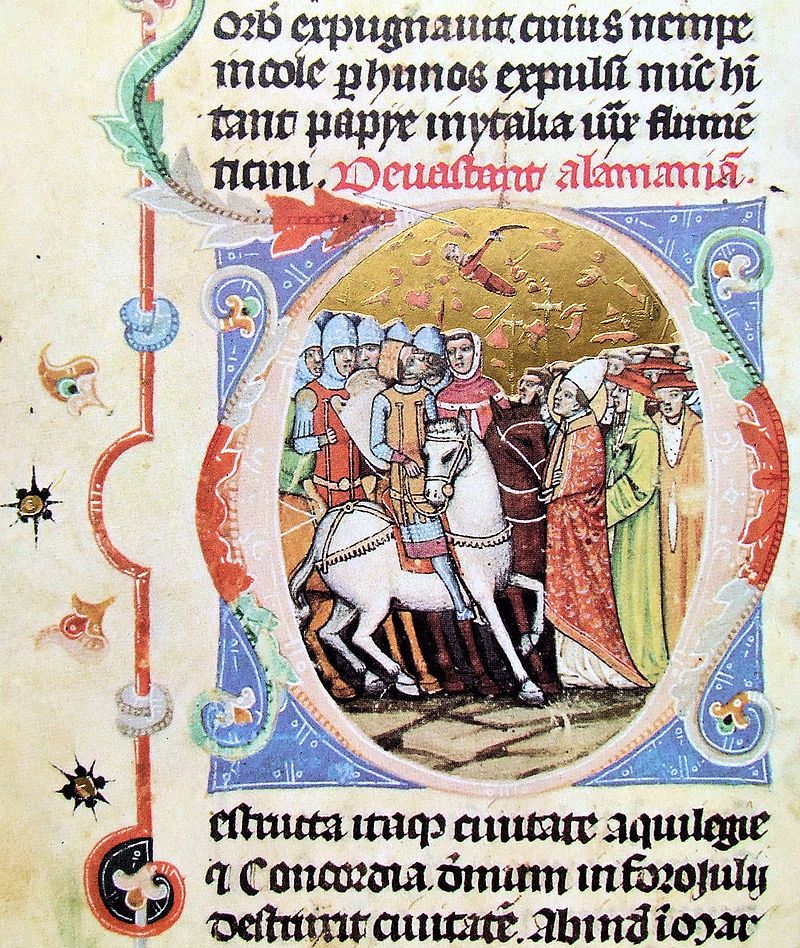 orb̄ expugnauit. cuius nempe
incole ꝑ hunos expulsi nūc hi
tant papye in ytalia iux̄ flumē
ticini. Deuastant alamaniā.
estructa itaqꝫ ciuitate aquilegie
⁊ Concordia. dm̄um in foroJulij
destruxit ciuitatē. Ab ind̄ ī Mar